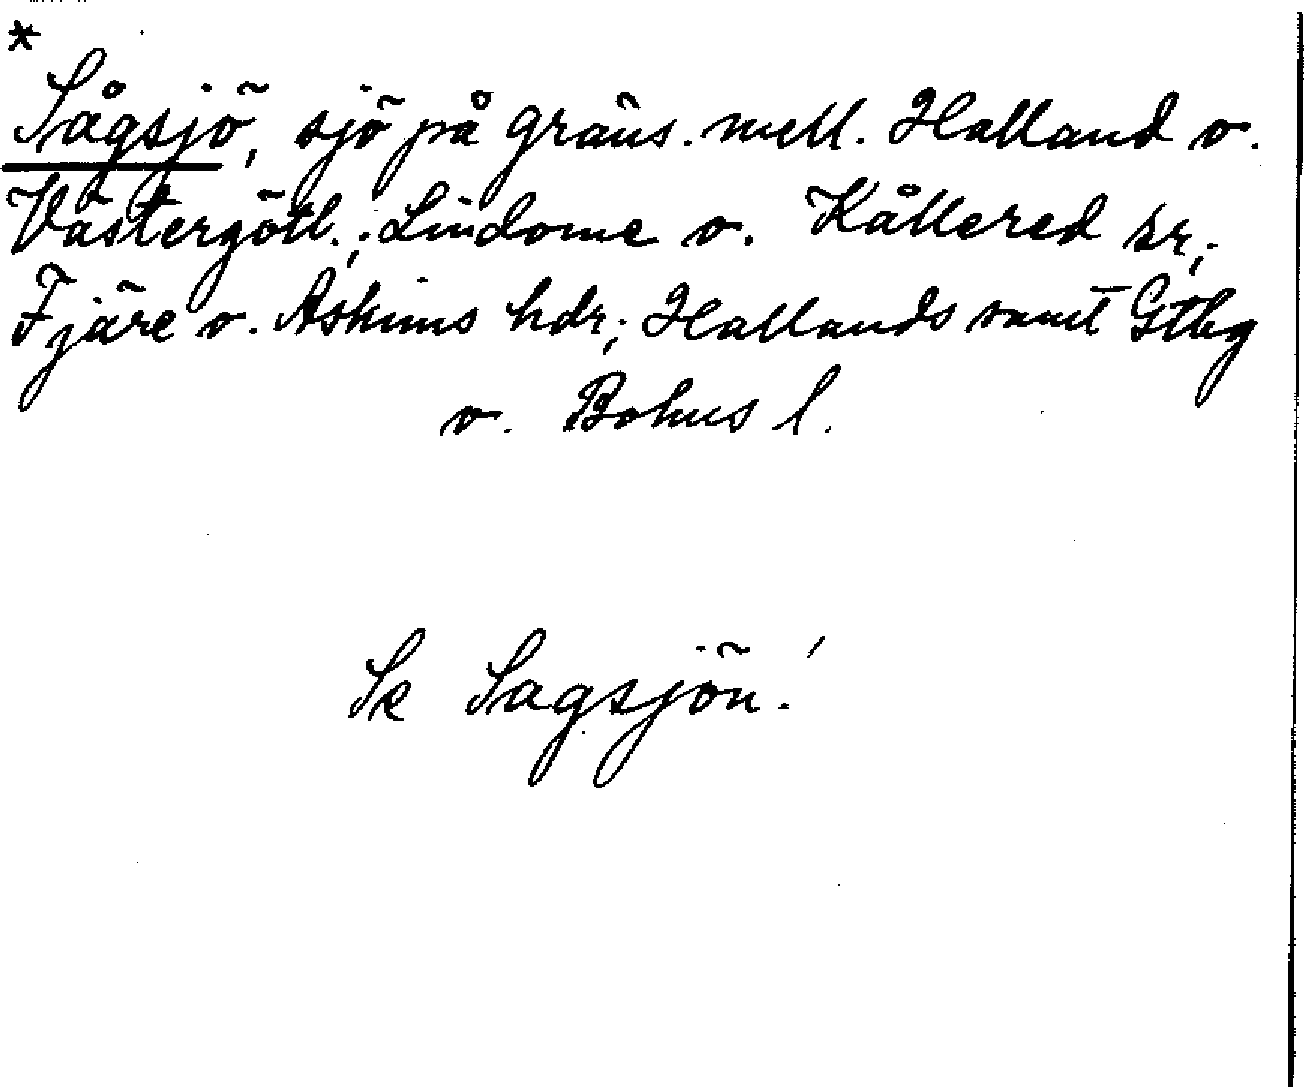 *
Sågsjö, sjö på gräns. mell. Halland o.
Västergötl.; Lindome o. Kållered sr;
Fjäre o. Askims hdr; Hallands samt Gtbg
o. Bohus l.
Se Sagsjön!